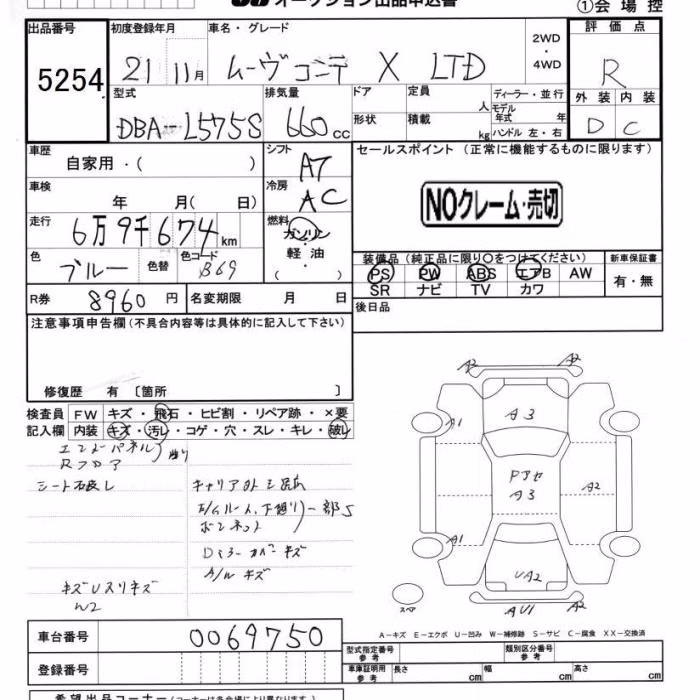 オークション出品申込書
①会場控
出品番号 初度登録年月 車名・グレード 2WD ・ 4WD 評価点
5254 21 11月 ムーヴコンテ X LTD R
型式 排気量 ドア 定員 人 ディーラー・並行 外装 内装
DBA-L575S 660cc 形状 積載 kg モデル年式 年 ハンドル 左・右 D C
車歴 シフト セールスポイント (正常に機能するものに限ります)
自家用・( ) AT
車検 冷房
年 月( 日) AC NOクレーム・売切
走行 燃料
6万9千674km ガソリン
色 色替 色コード 軽油 装備品 (純正品に限り○をつけてください) 新車保証書
ブルー B69 ( ) PS PW ABS エアB AW 有・無
R券 8960円 名変期限 月 日 SR ナビ TV カワ
注意事項申告欄(不具合内容等は具体的に記入して下さい) 後日品
修復歴 有 〔箇所 〕
検査員 FW キズ・飛石・ヒビ割・リペア跡・×要
記入欄 内装 キズ・汚レ・コゲ・穴・スレ・キレ・破レ
Rフロア
シート破レ
ボンネット
Dミラーカバーキズ
A/Wキズ
キズUスリキズ
W2
A2 A2
A1 A3
A3 A2
A1
UA2
スペア A2 AU1 A2
A-キズ E-エクボ U-凹み W-補修跡 S-サビ C-腐食 XX-交換済
車台番号 0069750 型式指定番号 参考 類別区分番号 参考
登録番号 車庫証明用 参考 長さ cm 幅 cm 高さ cm
希望出品コーナー